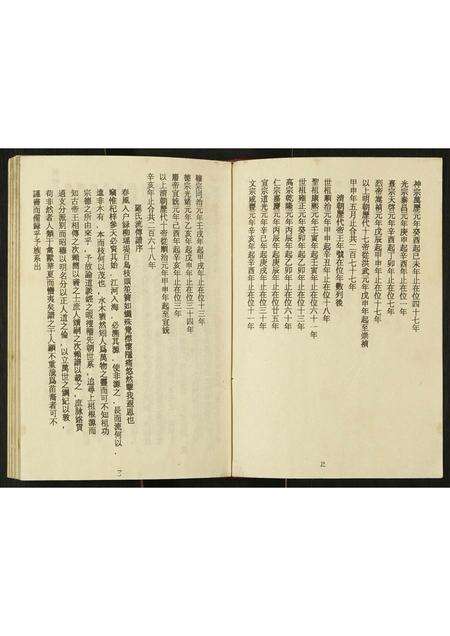 神宗萬歷元年癸酉起己未年止在位四十七年
光宗泰昌元年庚申起辛酉年止在位一年
熹宗天啓元年辛酉起丁卯年止在位七年
烈帝崇禎元年戊辰起甲申年止在位十七年
以上明朝歷代十七帝從洪武元年戊申年起至崇禎
十七年五月止合共二百七十七年
清朝歷代帝王年號在位年數列後
世祖順治元年甲申年起辛丑年止在位十八年
聖祖康熙元年壬寅年起壬寅年止在位六十一年
世祖雍正元年癸卯年起乙卯年止在位十三年
高宗乾隆元年丙辰年起乙卯年止在位六十年
仁宗嘉慶元年丙辰年起庚辰年止在位廿五年
宣宗道光元年辛巳年起庚戌年止在位三十年
文宗咸豐元年辛亥年起辛酉年止在位十一年
穆宗同治元年壬戌年起甲戌年止在位十三年
德宗光緒元年乙亥年起戊申年止在位三十四年
廢帝宣統元年己酉年起辛亥年止在位三年
以上清朝歷代十帝從順治元年甲申年起至宣統
辛亥年止合共二百六十八年
羅氏流傳譜序
春風入户綠柳搖塲百鳥技頭莘簧如織殊覺襟懷隱痛悠然繫我遐思也
竊惟杞梓參天必實其始 江河入海 必溯其源 使非源之 長而流何以
遠非水有 本而枝何以茂也 水木猶然矧人爲萬物之靈而可不知祖功
宗德之所由來乎 予故論道談經之暇搜檢先朝世系 追尋上祖根源而
知古帝王相傳之次賴歷以著之士庶人續嗣之次賴譜以載之 庶脉絡貫
通支分派別而昭穆以明名分以正人道之倫 以立萬世之綱紀以敦
苟非然者人類于禽獸華夏而蠻夷矣譜之于人顧不重哉爲苗裔者可不
謹書而備錄乎予族系出